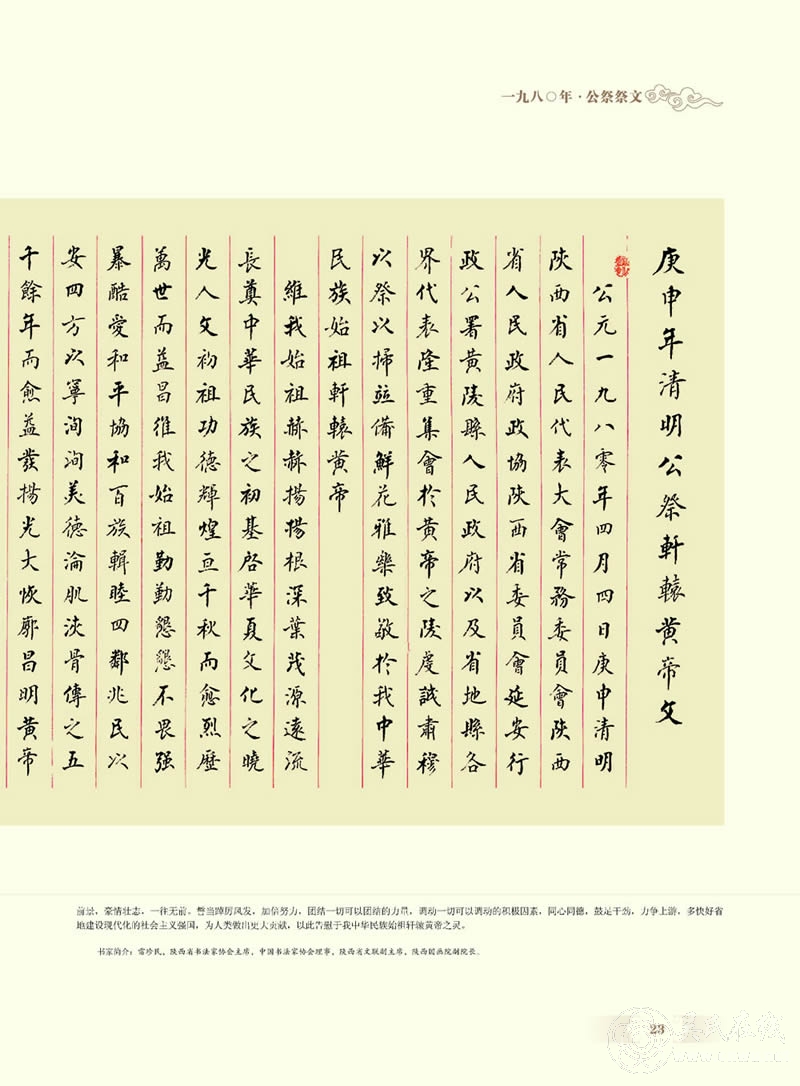 一九八〇年·公祭祭文
庚申年清明公祭軒轅黄帝文
公元一九八零年四月四日庚申清明
陝西省人民代表大會常務委員會陝西
省人民政府政協陝西省委員會延安行
政公署黄陵縣人民政府以及省地縣各
界代表隆重集會於黄帝之陵虔誠肅穆
以祭以掃竝備鮮花雅樂致敬於我中華
民族始祖軒轅黄帝
維我始祖赫赫揚揚根深葉茂源遠流
長奠中華民族之初基启華夏文化之曉
光人文初祖功德輝煌亘千秋而愈烈歷
萬世而益昌維我始祖勤勤懇懇不畏强
暴酷愛和平協和百族輯睦四鄰兆民以
安四方以寧洵洵美德淪肌浹骨傳之五
千餘年而愈益發揚光大恢廓昌明黄帝
前景，豪情壮志，一往无前。誓当踔厉风发，加倍努力，团结一切可以团结的力量，调动一切可以调动的积极因素，同心同德，鼓足干劲，力争上游，多快好省
地建设现代化的社会主义强国，为人类做出更大贡献，以此告慰于我中华民族始祖轩辕黄帝之灵。
书家简介：雷珍民，陕西省书法家协会主席，中国书法家协会理事，陕西省文联副主席，陕西国画院副院长。
23